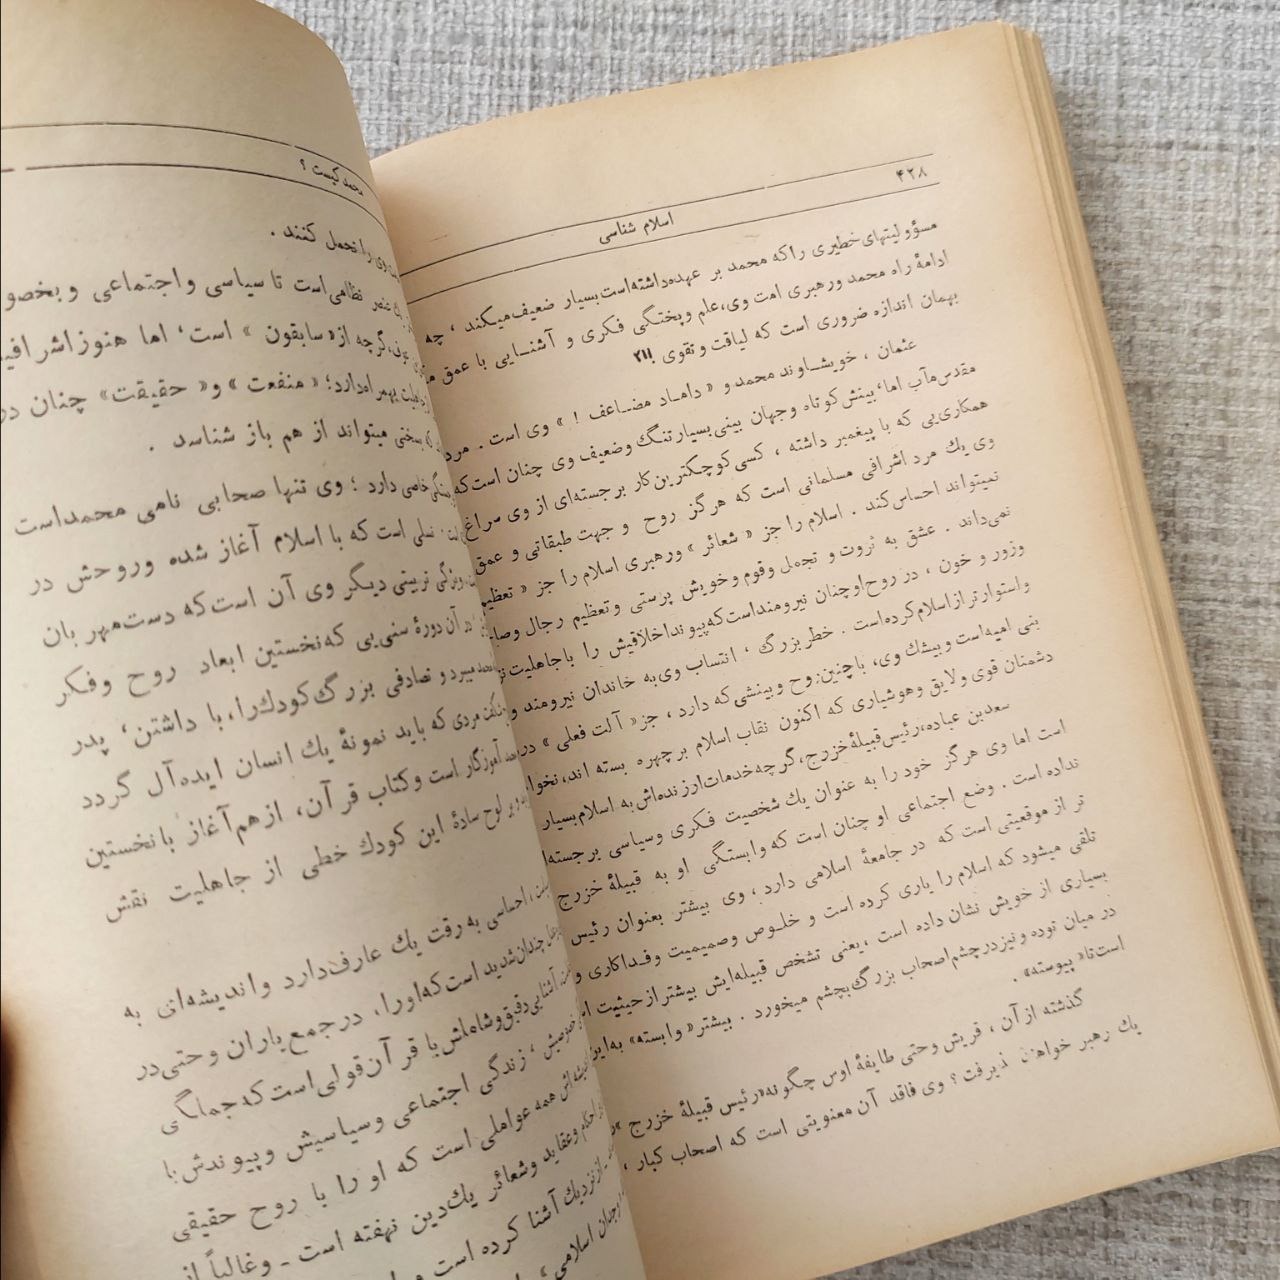 ۴۲۸
اسلام شناسی
مسؤولیتهای خطیری را که محمد بر عهده داشته است بسیار ضعیف میکند ، چه
ادامهٔ راه محمد و رهبری امت وی، علم و پختگی فکری و آشنایی با عمق
بهمان اندازه ضروری است که لیاقت و تقوی .
عثمان ، خویشاوند محمد و « داماد مضاعف ! » وی است . مرد
مقدس مآب اما، بینش کوتاه و جهان بینی بسیار تنگ و ضعیف وی چنان است که
همکاری‌یی که با پیغمبر داشته ، کسی کوچکترین کار برجسته‌ای از وی سراغ
وی یك مرد اشرافی مسلمانی است که هرگز روح و جهت طبقاتی و عمق
نمیتواند احساس کند . اسلام را جز « شعائر » و رهبری اسلام را جز « تعظیم
نمی‌داند . عشق به ثروت و تجمل و قوم و خویش پرستی و تعظیم رجال و صا
وزور و خون ، در روح او چنان نیرومند است که پیوند اخلاقیش را با جاهلیت
و استوارتر از اسلام کرده است . خطر بزرگ ، انتساب وی به خاندان نیرومند و
بنی امیه است و بیشك وی، با چنین روح و بینشی که دارد ، جز « آلت فعلی » در
دشمنان قوی و لایق و هوشیاری که اکنون نقاب اسلام بر چهره بسته اند، نخوا
سعد بن عباده، رئیس قبیلهٔ خزرج، گرچه خدمات ارزنده‌اش به اسلام بسیار
است اما وی هرگز خود را به عنوان یك شخصیت فکری و سیاسی برجسته‌ا
نداده است . وضع اجتماعی او چنان است که وابستگی او به قبیلهٔ خزرج
تر از موقعیتی است که در جامعهٔ اسلامی دارد ، وی بیشتر بعنوان رئیس
تلقی میشود که اسلام را یاری کرده است و خلوص و صمیمیت و فداکاری و
بسیاری از خویش نشان داده است ، یعنی تشخص قبیله‌ایش بیشتر از حیثیت
در میان توده و نیز در چشم اصحاب بزرگ بچشم میخورد . بیشتر « وابسته » به این
است تا « پیوسته » .
گذشته از آن ، قریش و حتی طایفهٔ اوس چگونه « رئیس قبیلهٔ خزرج »
یك رهبر خواهند پذیرفت ؟ وی فاقد آن معنویتی است که اصحاب کبار ،
محمد کیست ؟
وی را تحمل کنند .
عنصر نظامی است تا سیاسی و اجتماعی و بخصو
گرچه از « سابقون » است، اما هنوز اشرافی
بهمراه دارد؛ « منفعت » و « حقیقت » چنان در
بسختی میتواند از هم باز شناسد .
خاصی دارد ؛ وی تنها صحابی نامی محمد است
نسلی است که با اسلام آغاز شده و روحش در
ویژگی تربیتی دیگر وی آن است که دست مهربان
آن دورهٔ سنی‌یی که نخستین ابعاد روح و فکر
میبرد و تصادفی بزرگ کودك را، با داشتن، پدر
مردی که باید نمونهٔ یك انسان ایده‌آل گردد
آموزگار است و کتاب قرآن، از هم آغاز با نخستین
بر لوح سادهٔ این کودك خطی از جاهلیت نقش
احساسی به رقت یك عارف دارد و اندیشه‌ای به
چندان شدید است که او را، در جمع یاران و حتی در
آشنایی دقیق و شامل‌اش با قرآن قولی است که جملگی
خصوصیش ، زندگی اجتماعی و سیاسیش و پیوندش با
همه عواملی است که او را با روح حقیقی
احکام و عقاید و شعائر یك دین نهفته است ـ و غالباً از
از نزدیك آشنا کرده است و
وجدان اسلامی ،